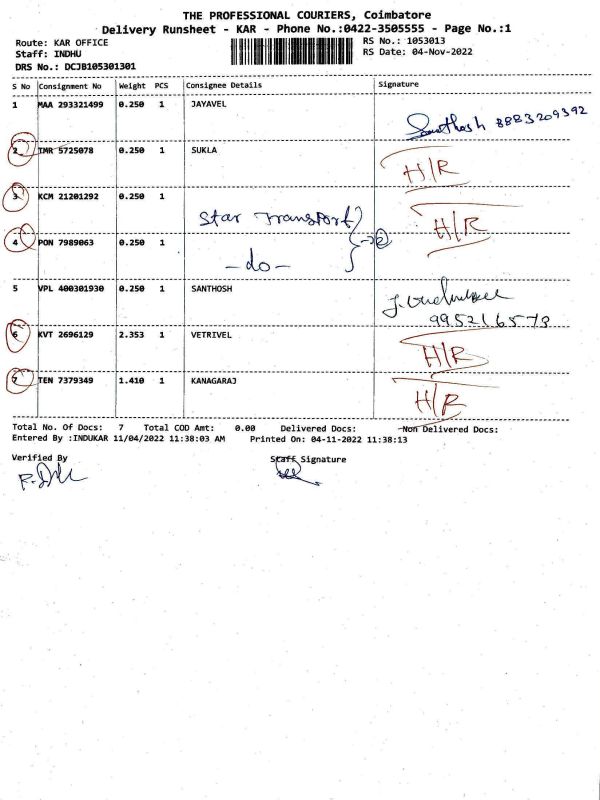 THE PROFESSIONAL COURIERS, Coimbatore
Delivery Runsheet - KAR - Phone No.:0422-3505555 - Page No.:1
Route: KAR OFFICE RS No.: 1053013
Staff: INDHU RS Date: 04-Nov-2022
DRS No.: DCJB105301301
S No Consignment No Weight PCS Consignee Details Signature
1 MAA 293321499 0.250 1 JAYAVEL
Santhosh 8883209392
2 TMR 5725078 0.250 1 SUKLA H/R
3 KCM 21201292 0.250 1
Star Transport H/R
4 PON 7989063 0.250 1
-do-
5 VPL 400301930 0.250 1 SANTHOSH
995216573
6 KVT 2696129 2.353 1 VETRIVEL H/R
7 TEN 7379349 1.410 1 KANAGARAJ H/R
Total No. Of Docs: 7 Total COD Amt: 0.00 Delivered Docs: Non Delivered Docs:
Entered By :INDUKAR 11/04/2022 11:38:03 AM Printed On: 04-11-2022 11:38:13
Verified By Staff Signature